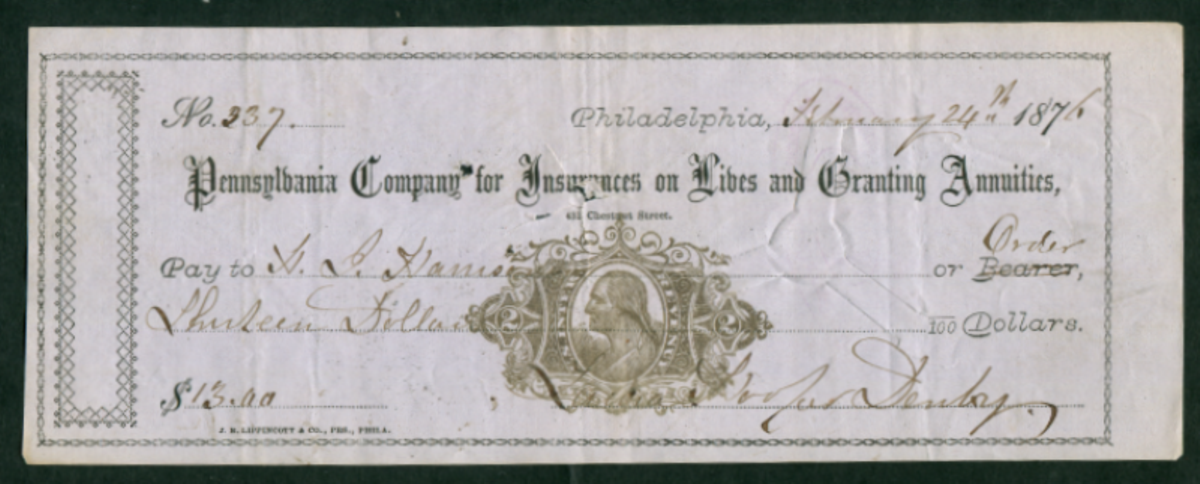 No. 237. Philadelphia, February 24th 1876
Pennsylvania Company for Insurances on Lives and Granting Annuities,
Chestnut Street.
Order
Pay to or Bearer,
Thirteen Dollars 100 Dollars.
2 2
$13.00
J. B. LIPPINCOTT & CO., PRS., PHILA.